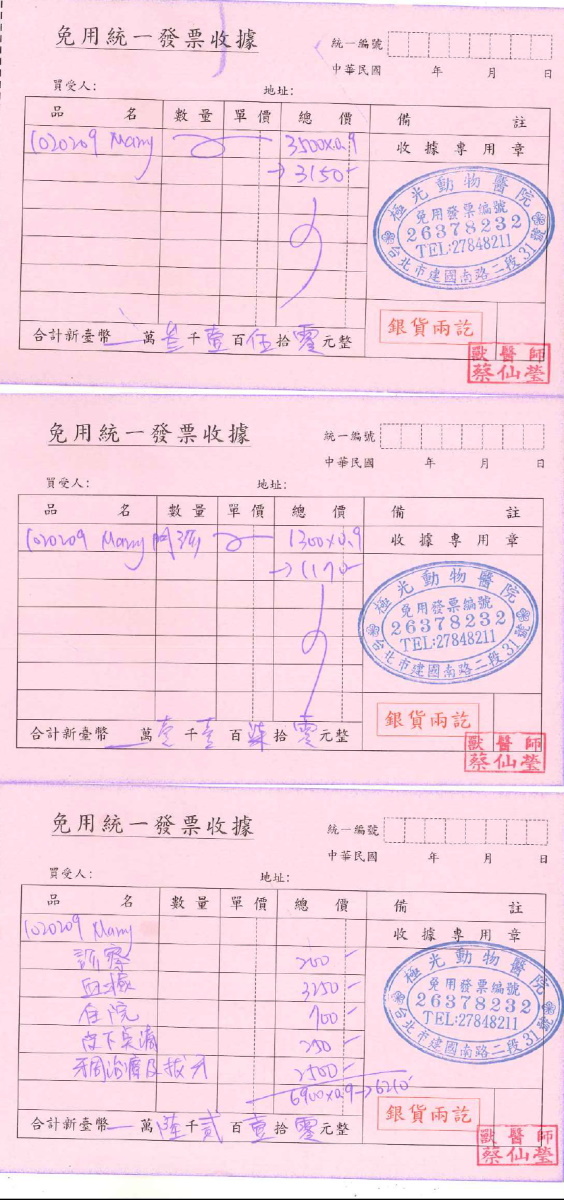 免用統一發票收據
統一編號
中華民國 年 月 日
買受人: 地址:
品 名 數量 單價 總 價 備 註
1020209 Many 3500x0.9 收據專用章
→3150-
極光動物醫院
免用發票編號
26378232
TEL:27848211
台北市建國南路二段31號
銀貨兩訖
合計新臺幣 萬叁千壹百伍拾零元整
獸醫師
蔡仙瑩
免用統一發票收據
統一編號
中華民國 年 月 日
買受人: 地址:
品 名 數量 單價 總 價 備 註
1020209 Many 1300x0.9 收據專用章
→1170-
極光動物醫院
免用發票編號
26378232
TEL:27848211
台北市建國南路二段31號
銀貨兩訖
合計新臺幣 萬壹千壹百柒拾零元整
獸醫師
蔡仙瑩
免用統一發票收據
統一編號
中華民國 年 月 日
買受人: 地址:
品 名 數量 單價 總 價 備 註
1020209 Many 收據專用章
診察 200-
血檢 3250-
住院 700-
皮下点滴 250-
牙周治療及拔牙 2500-
6900x0.9→6210-
極光動物醫院
免用發票編號
26378232
TEL:27848211
台北市建國南路二段31號
銀貨兩訖
合計新臺幣 萬陸千貳百壹拾零元整
獸醫師
蔡仙瑩